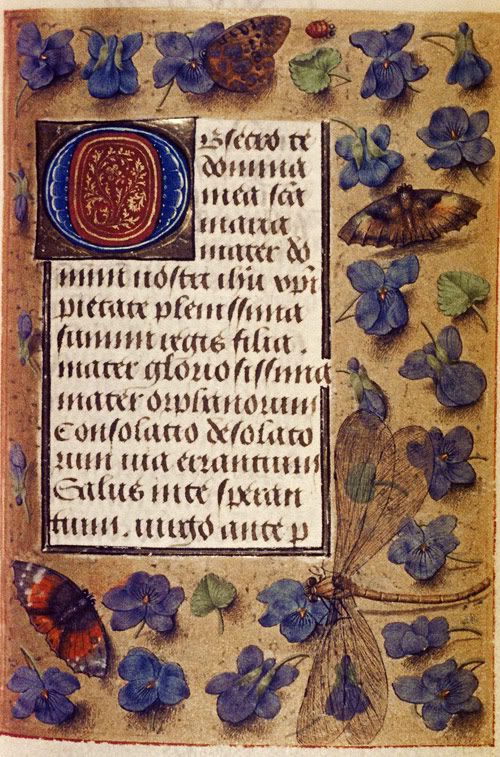 Obsecro te
domina
mea sca
maria
mater do
mini nostri ihu xpi
pietate plenissima
summi regis filia.
mater gloriosissima
mater orphanorum
Consolatio desolato
rum via errantium
Salus in te speran
tium. virgo ante p